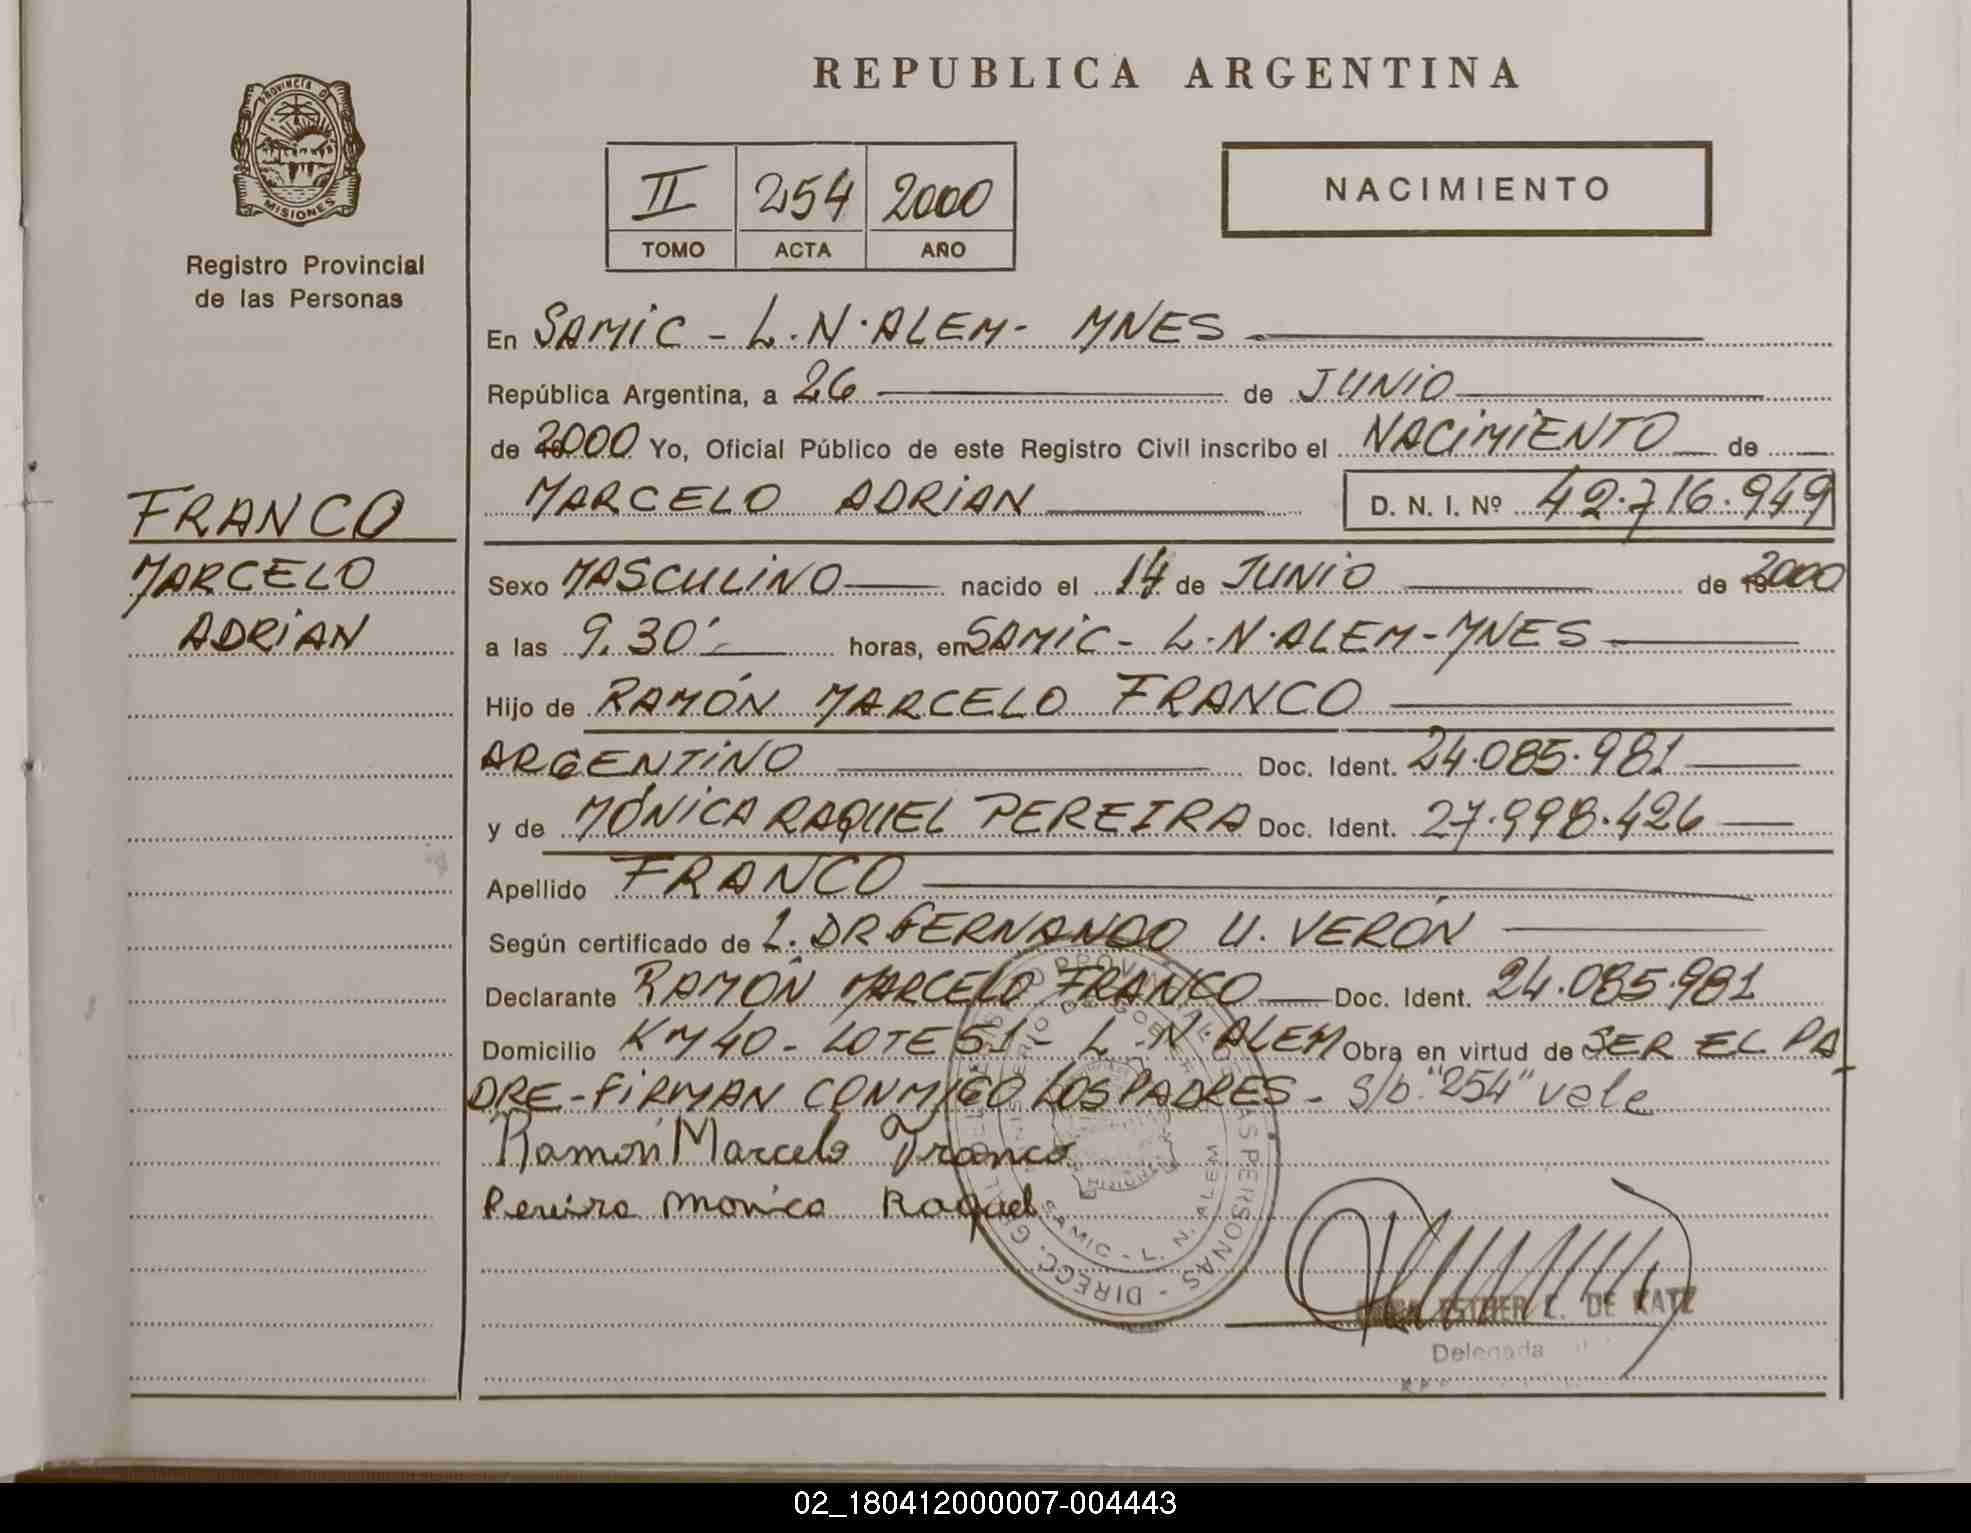 REPUBLICA ARGENTINA
PROVINCIA D
MISIONES
Registro Provincial
de las Personas
II 254 2000
TOMO ACTA AÑO
NACIMIENTO
FRANCO
MARCELO
ADRIAN
En SAMIC - L.N.ALEM- MNES
República Argentina, a 26 de JUNIO
de 2000 Yo, Oficial Público de este Registro Civil inscribo el NACIMIENTO de
MARCELO ADRIAN D. N. I. Nº 42.716.949
Sexo MASCULINO nacido el 14 de JUNIO de 2000
a las 9.30'- horas, en SAMIC - L.N.ALEM-MNES
Hijo de RAMÓN MARCELO FRANCO
ARGENTINO Doc. Ident. 24.085.981
y de MÓNICA RAQUEL PEREIRA Doc. Ident. 27.998.426
Apellido FRANCO
Según certificado de 1. DR FERNANDO U. VERÓN
Declarante RAMÓN MARCELO FRANCO Doc. Ident. 24.085.981
Domicilio KM 40 - LOTE 51 - L.N.ALEM Obra en virtud de SER EL PA-
DRE-FIRMAN CONMIGO LOS PADRES- s/b "254" vale
Ramón Marcelo Franco
Pereira Monica Raquel
SAMIC - L. N. ALEM
ESTHER E. DE KATZ
Delegada
02_180412000007-004443